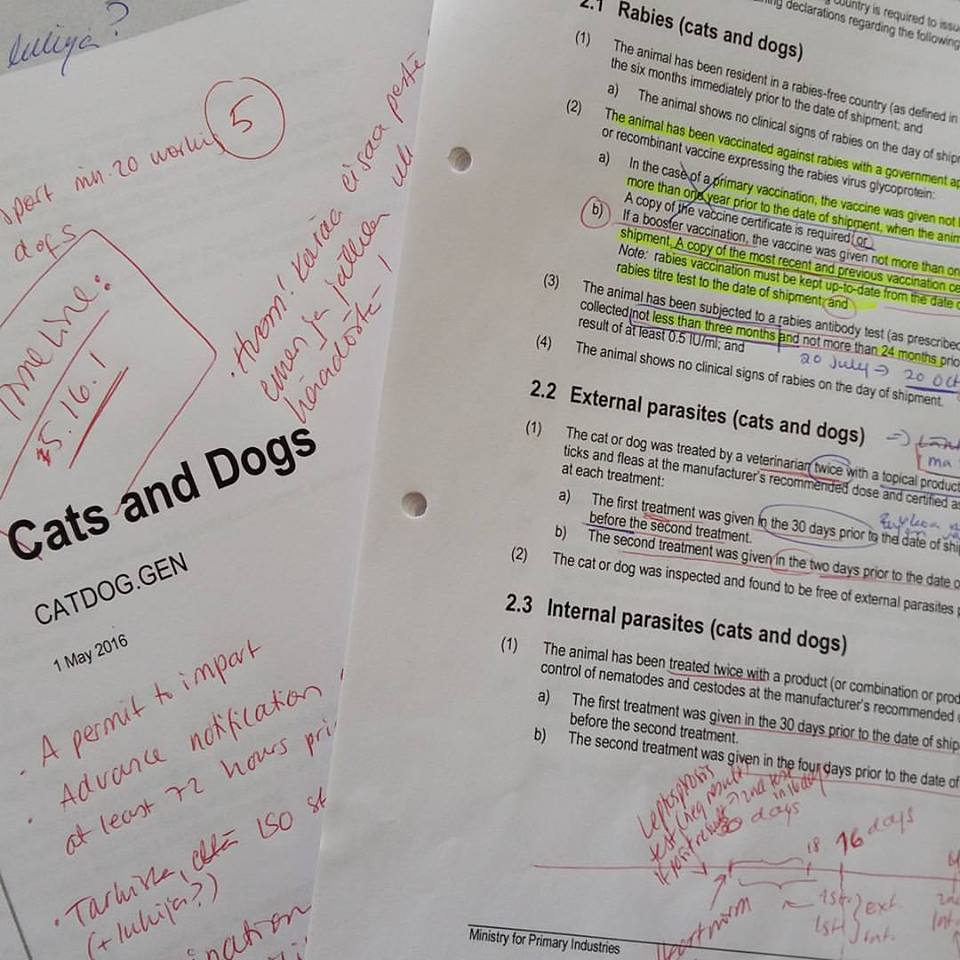 5
min. 20 working
dogs
Timeline:
5.16.1
Cats and Dogs
CATDOG.GEN
1 May 2016
• A permit to import
• Advance notification
at least 72 hours pri
• Tarkista, että ISO st
(+ lukija?)
country is required to issu
declarations regarding the following
2.1 Rabies (cats and dogs)
(1) The animal has been resident in a rabies-free country (as defined in
the six months immediately prior to the date of shipment; and
a) The animal shows no clinical signs of rabies on the day of ship
(2) The animal has been vaccinated against rabies with a government ap
or recombinant vaccine expressing the rabies virus glycoprotein:
a) In the case of a primary vaccination, the vaccine was given not
more than one year prior to the date of shipment, when the anim
A copy of the vaccine certificate is required or
b) If a booster vaccination, the vaccine was given not more than on
shipment. A copy of the most recent and previous vaccination ce
Note: rabies vaccination must be kept up-to-date from the date o
rabies titre test to the date of shipment; and
(3) The animal has been subjected to a rabies antibody test (as prescribed
collected not less than three months and not more than 24 months prio
result of at least 0.5 IU/ml; and
20 July → 20 Oct
(4) The animal shows no clinical signs of rabies on the day of shipment.
2.2 External parasites (cats and dogs)
(1) The cat or dog was treated by a veterinarian twice with a topical product
ticks and fleas at the manufacturer's recommended dose and certified as
at each treatment:
a) The first treatment was given in the 30 days prior to the date of ship
before the second treatment.
b) The second treatment was given in the two days prior to the date o
(2) The cat or dog was inspected and found to be free of external parasites
2.3 Internal parasites (cats and dogs)
(1) The animal has been treated twice with a product (or combination or prod
control of nematodes and cestodes at the manufacturer's recommended
a) The first treatment was given in the 30 days prior to the date of ship
before the second treatment.
b) The second treatment was given in the four days prior to the date of
Leptospirosis
30 days
18 16 days
1st ext.
1st int.
Heartworm
Ministry for Primary Industries